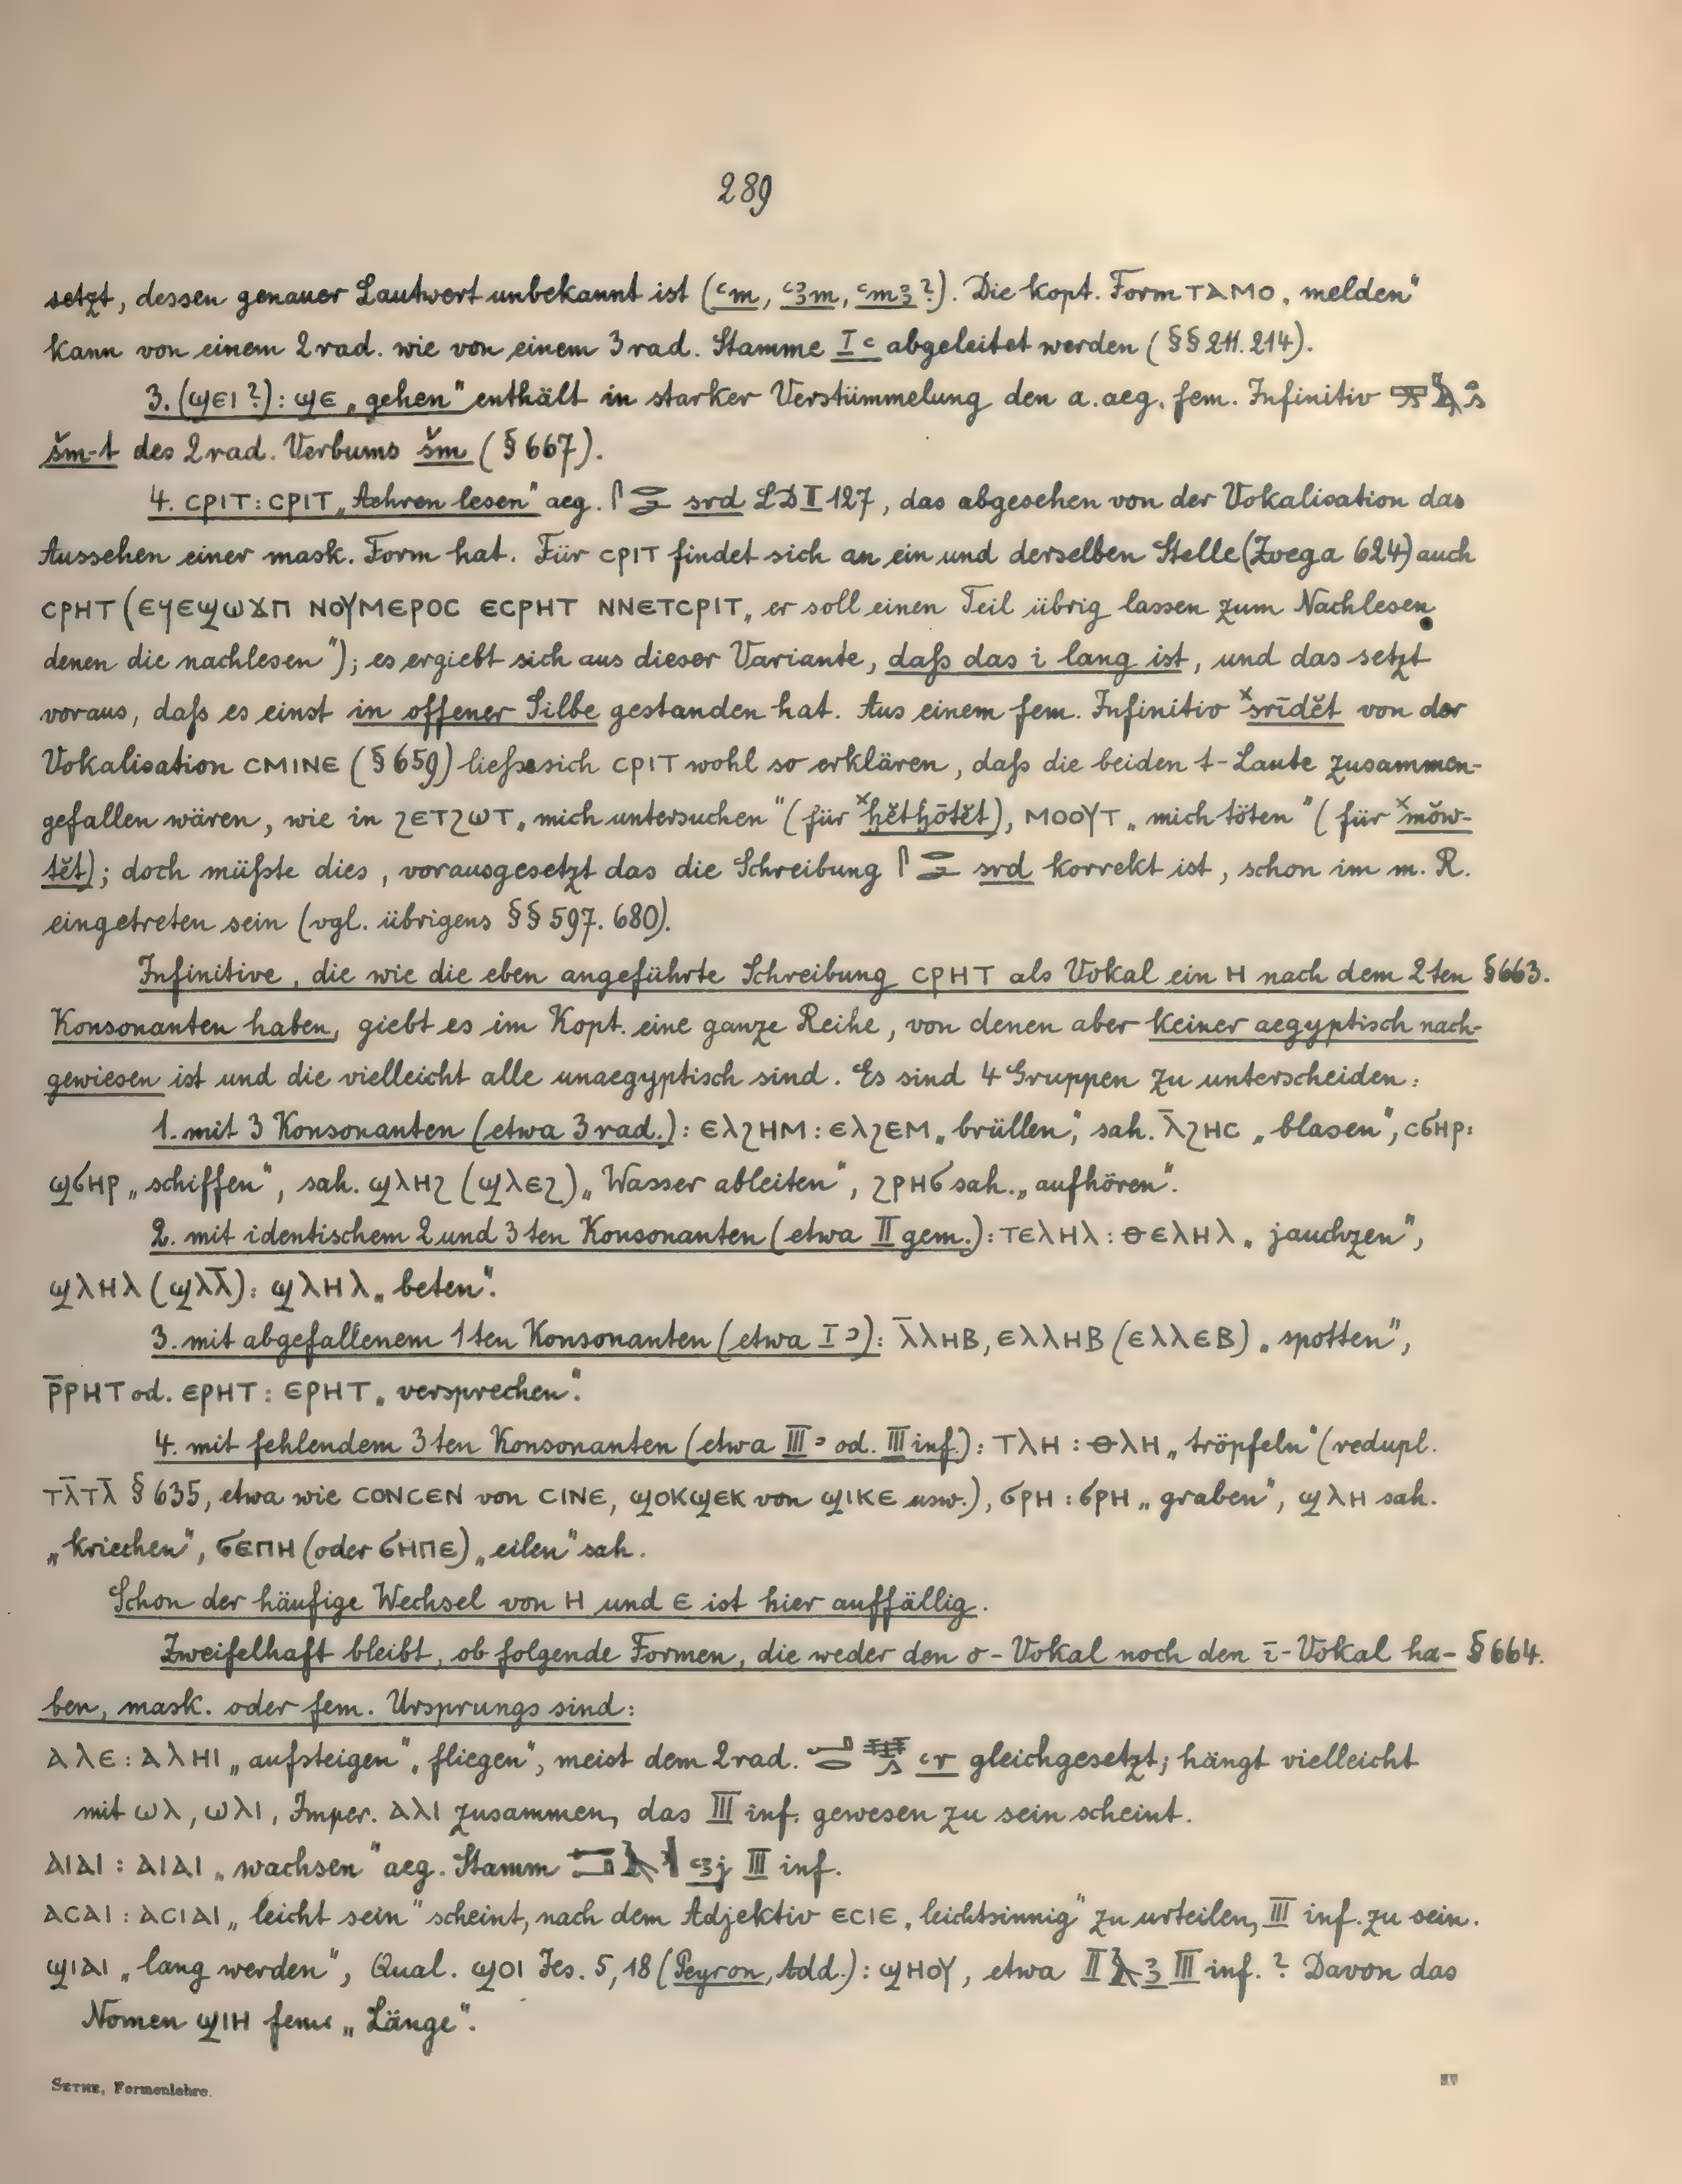 289
setzt, dessen genauer Lautwert unbekannt ist (ꜥm, ꜥꜣm, ꜥmꜣ?). Die kopt. Form ⲧⲁⲙⲟ „melden“
kann von einem 2rad. wie von einem 3rad. Stamme I ꜥ abgeleitet werden (§§ 211. 214).
3. (ϣⲉⲓ?): ϣⲉ „gehen“ enthält in starker Verstümmelung den a. aeg. fem. Infinitiv
šm-t des 2rad. Verbums šm (§ 667).
4. ⲥⲣⲓⲧ: ⲥⲣⲓⲧ „Aehren lesen“ aeg. 𓋴𓂋𓂧 srd LD II 127, das abgesehen von der Vokalisation das
Aussehen einer mask. Form hat. Für ⲥⲣⲓⲧ findet sich an ein und derselben Stelle (Zoega 624) auch
ⲥⲣⲏⲧ (ⲉϥⲉϣⲱϫⲡ ⲛⲟⲩⲙⲉⲣⲟⲥ ⲉⲥⲣⲏⲧ ⲛⲛⲉⲧⲥⲣⲓⲧ „er soll einen Teil übrig lassen zum Nachlesen
denen die nachlesen“); es ergiebt sich aus dieser Variante, daß das i lang ist, und das setzt
voraus, daß es einst in offener Silbe gestanden hat. Aus einem fem. Infinitiv ˣsrīdĕt von der
Vokalisation ⲥⲙⲓⲛⲉ (§ 659) ließe sich ⲥⲣⲓⲧ wohl so erklären, daß die beiden t-Laute zusammen-
gefallen wären, wie in ϩⲉⲧϩⲱⲧ „mich untersuchen“ (für ˣḫĕtḫōtĕt), ⲙⲟⲟⲩⲧ „mich töten“ (für ˣmŏw-
tĕt); doch müßte dies, vorausgesetzt das die Schreibung 𓋴𓂋𓂧 srd korrekt ist, schon im m. R.
eingetreten sein (vgl. übrigens §§ 597. 680).
Infinitive, die wie die eben angeführte Schreibung ⲥⲣⲏⲧ als Vokal ein ⲏ nach dem 2ten § 663.
Konsonanten haben, giebt es im Kopt. eine ganze Reihe, von denen aber keiner aegyptisch nach-
gewiesen ist und die vielleicht alle unaegyptisch sind. Es sind 4 Gruppen zu unterscheiden:
1. mit 3 Konsonanten (etwa 3rad.): ⲉⲗϩⲏⲙ: ⲉⲗϩⲉⲙ „brüllen“, sah. ⲗ̄ϩⲏⲥ „blasen“, ⲥϭⲏⲣ:
ϣϭⲏⲣ „schiffen“, sah. ϣⲗⲏϩ (ϣⲗⲉϩ) „Wasser ableiten“, ϩⲣⲏϭ sah. „aufhören“.
2. mit identischem 2 und 3ten Konsonanten (etwa II gem.): ⲧⲉⲗⲏⲗ: ⲑⲉⲗⲏⲗ „jauchzen“,
ϣⲗⲏⲗ (ϣⲗⲗ̄): ϣⲗⲏⲗ „beten“.
3. mit abgefallenem 1ten Konsonanten (etwa I ꜣ): ⲗ̄ⲗⲏⲃ, ⲉⲗⲗⲏⲃ (ⲉⲗⲗⲉⲃ) „spotten“,
ⲣ̄ⲣⲏⲧ od. ⲉⲣⲏⲧ: ⲉⲣⲏⲧ „versprechen“.
4. mit fehlendem 3ten Konsonanten (etwa III ꜣ od. III inf.): ⲧⲗⲏ: ⲑⲗⲏ „tröpfeln“ (redupl.
ⲧⲗ̄ⲧⲗ̄ § 635, etwa wie ⲥⲟⲛⲥⲉⲛ von ⲥⲓⲛⲉ, ϣⲟⲕϣⲉⲕ von ϣⲓⲕⲉ usw.), ϭⲣⲏ: ϭⲣⲏ „graben“, ϣⲗⲏ sah.
„kriechen“, ϭⲉⲡⲏ (oder ϭⲏⲡⲉ) „eilen“ sah.
Schon der häufige Wechsel von ⲏ und ⲉ ist hier auffällig.
Zweifelhaft bleibt, ob folgende Formen, die weder den o-Vokal noch den ī-Vokal ha- § 664.
ben, mask. oder fem. Ursprungs sind:
ⲁⲗⲉ: ⲁⲗⲏⲓ „aufsteigen“, „fliegen“, meist dem 2rad. ꜥr gleichgesetzt; hängt vielleicht
mit ⲱⲗ, ⲱⲗⲓ, Imper. ⲁⲗⲓ zusammen, das III inf. gewesen zu sein scheint.
ⲁⲓⲁⲓ: ⲁⲓⲁⲓ „wachsen“ aeg. Stamm ꜥꜣj III inf.
ⲁⲥⲁⲓ: ⲁⲥⲓⲁⲓ „leicht sein“ scheint, nach dem Adjektiv ⲉⲥⲓⲉ „leichtsinnig“ zu urteilen, III inf. zu sein.
ϣⲓⲁⲓ „lang werden“, Qual. ϣⲟⲓ Jes. 5,18 (Peyron, Add.): ϣⲏⲟⲩ, etwa II 𓄿 ꜣ III inf.? Davon das
Nomen ϣⲓⲏ fem. „Länge“.
SETHE, Formenlehre.